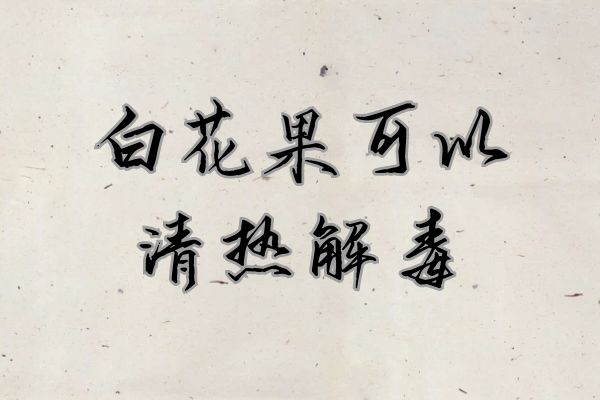 白花果可以
清热解毒